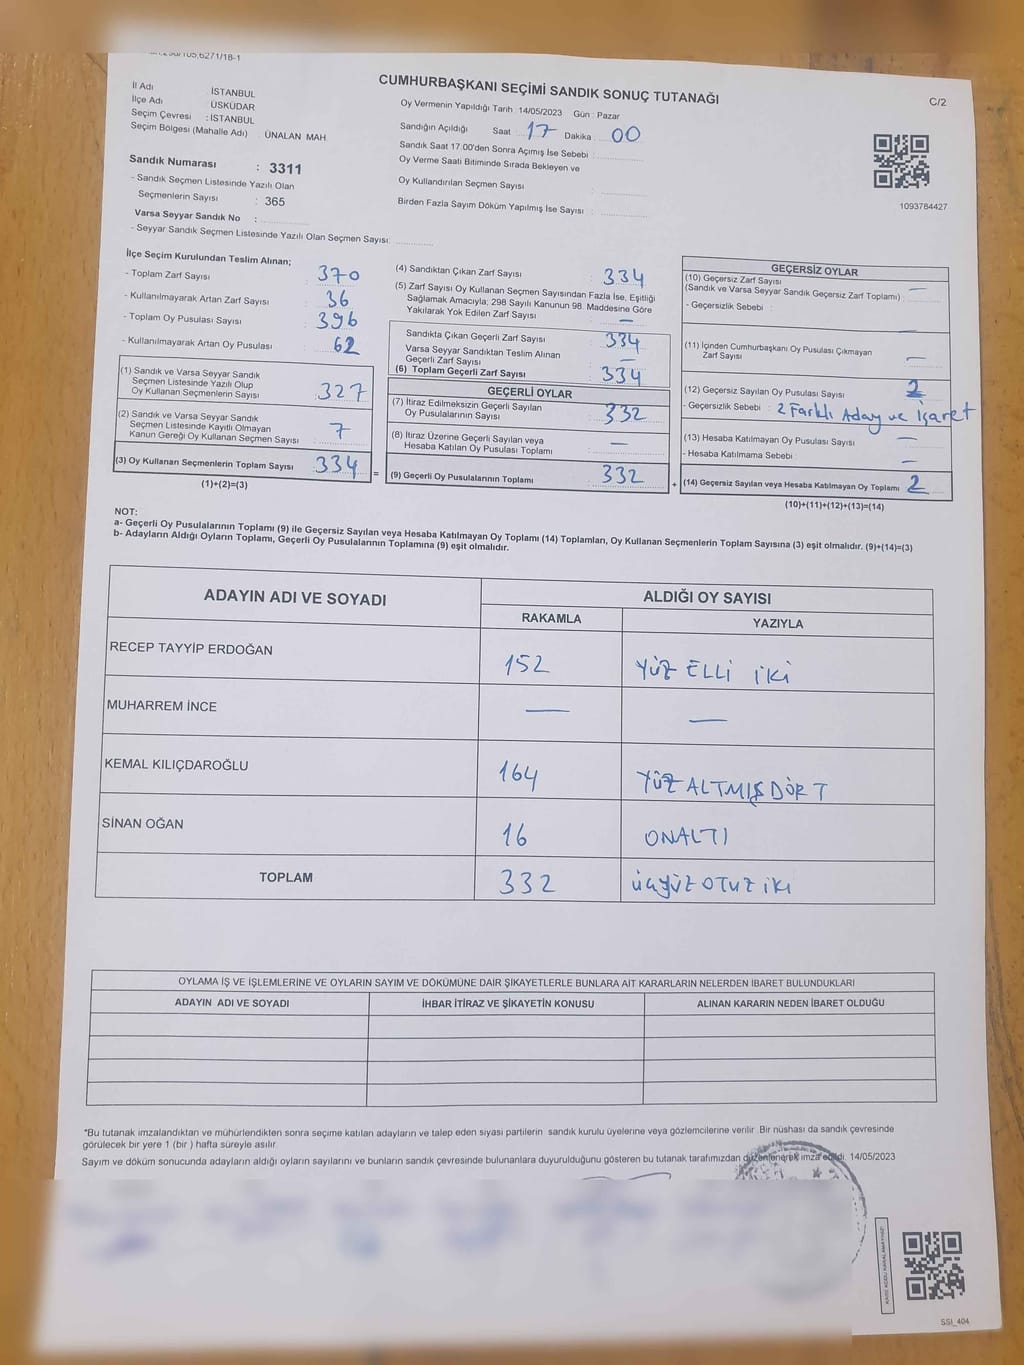 CUMHURBAŞKANI SEÇİMİ SANDIK SONUÇ TUTANAĞI
C/2
İl Adı İSTANBUL
İlçe Adı ÜSKÜDAR
Seçim Çevresi : İSTANBUL
Seçim Bölgesi (Mahalle Adı) : ÜNALAN MAH
Sandık Numarası : 3311
- Sandık Seçmen Listesinde Yazılı Olan
Seçmenlerin Sayısı : 365
Varsa Seyyar Sandık No :
- Seyyar Sandık Seçmen Listesinde Yazılı Olan Seçmen Sayısı:
Oy Vermenin Yapıldığı Tarih : 14/05/2023 Gün : Pazar
Sandığın Açıldığı Saat : 17 Dakika : 00
Sandık Saat 17:00'den Sonra Açımış İse Sebebi :
Oy Verme Saati Bitiminde Sırada Bekleyen ve
Oy Kullandırılan Seçmen Sayısı :
Birden Fazla Sayım Döküm Yapılmış İse Sayısı :
1093784427
İlçe Seçim Kurulundan Teslim Alınan;
- Toplam Zarf Sayısı : 370
- Kullanılmayarak Artan Zarf Sayısı : 36
- Toplam Oy Pusulası Sayısı : 396
- Kullanılmayarak Artan Oy Pusulası : 62
(1) Sandık ve Varsa Seyyar Sandık
Seçmen Listesinde Yazılı Olup
Oy Kullanan Seçmenlerin Sayısı : 327
(2) Sandık ve Varsa Seyyar Sandık
Seçmen Listesinde Kayıtlı Olmayan
Kanun Gereği Oy Kullanan Seçmen Sayısı : 7
(3) Oy Kullanan Seçmenlerin Toplam Sayısı : 334
(1)+(2)=(3)
=
(4) Sandıktan Çıkan Zarf Sayısı : 334
(5) Zarf Sayısı Oy Kullanan Seçmen Sayısından Fazla İse, Eşitliği
Sağlamak Amacıyla; 298 Sayılı Kanunun 98. Maddesine Göre
Yakılarak Yok Edilen Zarf Sayısı : —
Sandıkta Çıkan Geçerli Zarf Sayısı : 334
Varsa Seyyar Sandıktan Teslim Alınan
Geçerli Zarf Sayısı : —
(6) Toplam Geçerli Zarf Sayısı : 334
GEÇERLİ OYLAR
(7) İtiraz Edilmeksizin Geçerli Sayılan
Oy Pusulalarının Sayısı : 332
(8) İtiraz Üzerine Geçerli Sayılan veya
Hesaba Katılan Oy Pusulası Toplamı : —
(9) Geçerli Oy Pusulalarının Toplamı : 332
+
GEÇERSİZ OYLAR
(10) Geçersiz Zarf Sayısı
(Sandık ve Varsa Seyyar Sandık Geçersiz Zarf Toplamı) : —
- Geçersizlik Sebebi : —
(11) İçinden Cumhurbaşkanı Oy Pusulası Çıkmayan
Zarf Sayısı : —
(12) Geçersiz Sayılan Oy Pusulası Sayısı : 2
- Geçersizlik Sebebi : 2 Farklı Aday ve İşaret
(13) Hesaba Katılmayan Oy Pusulası Sayısı : —
- Hesaba Katılmama Sebebi : —
(14) Geçersiz Sayılan veya Hesaba Katılmayan Oy Toplamı : 2
(10)+(11)+(12)+(13)=(14)
NOT:
a- Geçerli Oy Pusulalarının Toplamı (9) ile Geçersiz Sayılan veya Hesaba Katılmayan Oy Toplamı (14) Toplamları, Oy Kullanan Seçmenlerin Toplam Sayısına (3) eşit olmalıdır. (9)+(14)=(3)
b- Adayların Aldığı Oyların Toplamı, Geçerli Oy Pusulalarının Toplamına (9) eşit olmalıdır.
ADAYIN ADI VE SOYADI ALDIĞI OY SAYISI
RAKAMLA YAZIYLA
RECEP TAYYİP ERDOĞAN 152 YÜZ ELLİ İKİ
MUHARREM İNCE — —
KEMAL KILIÇDAROĞLU 164 YÜZ ALTMIŞ DÖRT
SİNAN OĞAN 16 ONALTI
TOPLAM 332 ÜÇYÜZ OTUZ İKİ
OYLAMA İŞ VE İŞLEMLERİNE VE OYLARIN SAYIM VE DÖKÜMÜNE DAİR ŞİKAYETLERLE BUNLARA AİT KARARLARIN NELERDEN İBARET BULUNDUKLARI
ADAYIN ADI VE SOYADI İHBAR İTİRAZ VE ŞİKAYETİN KONUSU ALINAN KARARIN NEDEN İBARET OLDUĞU
*Bu tutanak imzalandıktan ve mühürlendikten sonra seçime katılan adayların ve talep eden siyasi partilerin sandık kurulu üyelerine veya gözlemcilerine verilir. Bir nüshası da sandık çevresinde
görülecek bir yere 1 (bir ) hafta süreyle asılır.
Sayım ve döküm sonucunda adayların aldığı oyların sayılarını ve bunların sandık çevresinde bulunanlara duyurulduğunu gösteren bu tutanak tarafımızdan düzenlenerek imza edildi. 14/05/2023
SSI_404